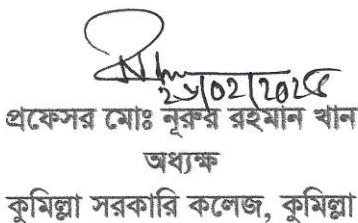 প্রফেসর মোঃ নূরুর রহমান খান
অধ্যক্ষ
কুমিল্লা সরকারি কলেজ, কুমিল্লা